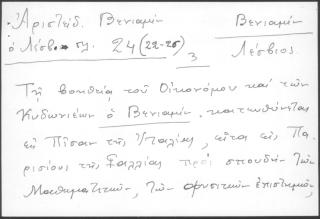 Ἀριστείδ. Βενιαμὶν
ὁ Λέσβιος 24 (22-25)
3
Βενιαμὶν
Λέσβιος.
Τῇ βοηθείᾳ τοῦ Οἰκονόμου καὶ τῶν
Κυδωνιέων ὁ Βενιαμὶν κατευθύνεται
εἰς Πῖσαν τῆς Ἰταλίας, εἶτα εἰς Πα-
ρισίους τῆς Γαλλίας πρὸς σπουδὴν τῶν
Μαθηματικῶν, τῶν φυσικῶν ἐπιστημῶν,